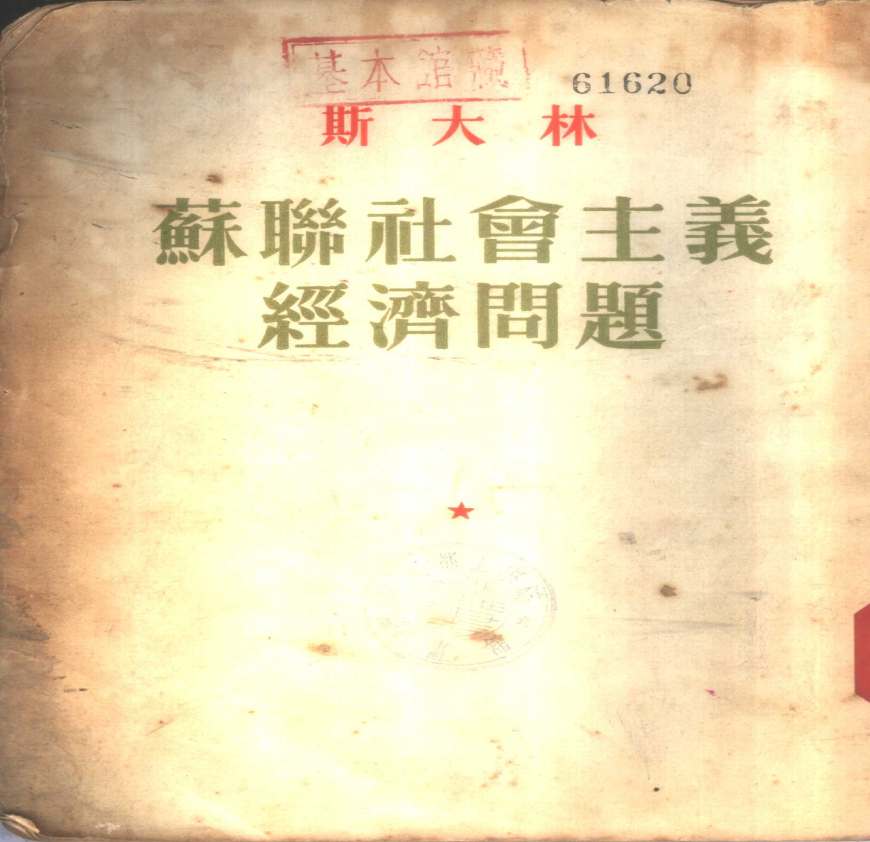 基本館藏
61620
斯大林
蘇聯社會主義
經濟問題